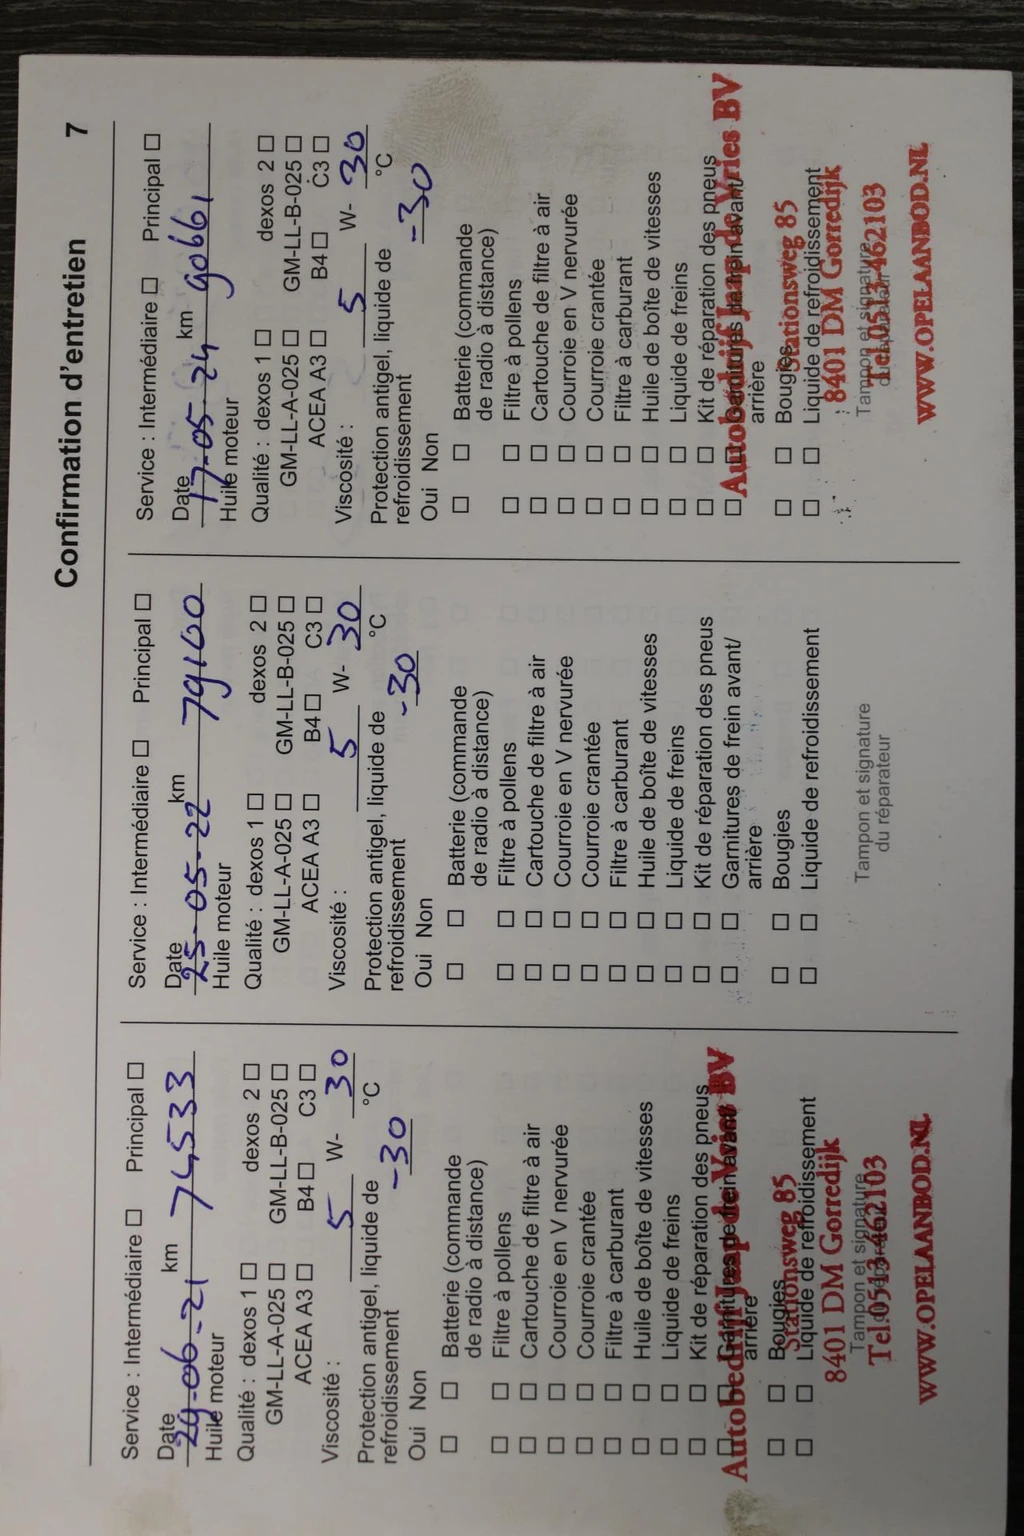 Confirmation d'entretien 7
Service : Intermédiaire □ Principal □
Date 29-06-21 km 74533
Huile moteur
Qualité : dexos 1 □ dexos 2 □
GM-LL-A-025 □ GM-LL-B-025 □
ACEA A3 □ B4 □ C3 □
Viscosité : 5 W- 30
Protection antigel, liquide de
refroidissement -30 °C
Oui Non
□ □ Batterie (commande
de radio à distance)
□ □ Filtre à pollens
□ □ Cartouche de filtre à air
□ □ Courroie en V nervurée
□ □ Courroie crantée
□ □ Filtre à carburant
□ □ Huile de boîte de vitesses
□ □ Liquide de freins
□ □ Kit de réparation des pneus
□ □ Garnitures de frein avant/
arrière
□ □ Bougies
□ □ Liquide de refroidissement
Tampon et signature
du réparateur
Autobedrijf Jaap de Vries BV
Stationsweg 85
8401 DM Gorredijk
Tel.0513-462103
WWW.OPELAANBOD.NL
Service : Intermédiaire □ Principal □
Date 25-05-22 km 79100
Huile moteur
Qualité : dexos 1 □ dexos 2 □
GM-LL-A-025 □ GM-LL-B-025 □
ACEA A3 □ B4 □ C3 □
Viscosité : 5 W- 30
Protection antigel, liquide de
refroidissement -30 °C
Oui Non
□ □ Batterie (commande
de radio à distance)
□ □ Filtre à pollens
□ □ Cartouche de filtre à air
□ □ Courroie en V nervurée
□ □ Courroie crantée
□ □ Filtre à carburant
□ □ Huile de boîte de vitesses
□ □ Liquide de freins
□ □ Kit de réparation des pneus
□ □ Garnitures de frein avant/
arrière
□ □ Bougies
□ □ Liquide de refroidissement
Tampon et signature
du réparateur
Service : Intermédiaire □ Principal □
Date 17-05-24 km 90661
Huile moteur
Qualité : dexos 1 □ dexos 2 □
GM-LL-A-025 □ GM-LL-B-025 □
ACEA A3 □ B4 □ C3 □
Viscosité : 5 W- 30
Protection antigel, liquide de
refroidissement -30 °C
Oui Non
□ □ Batterie (commande
de radio à distance)
□ □ Filtre à pollens
□ □ Cartouche de filtre à air
□ □ Courroie en V nervurée
□ □ Courroie crantée
□ □ Filtre à carburant
□ □ Huile de boîte de vitesses
□ □ Liquide de freins
□ □ Kit de réparation des pneus
□ □ Garnitures de frein avant/
arrière
□ □ Bougies
□ □ Liquide de refroidissement
Tampon et signature
du réparateur
Autobedrijf Jaap de Vries BV
Stationsweg 85
8401 DM Gorredijk
Tel.0513-462103
WWW.OPELAANBOD.NL